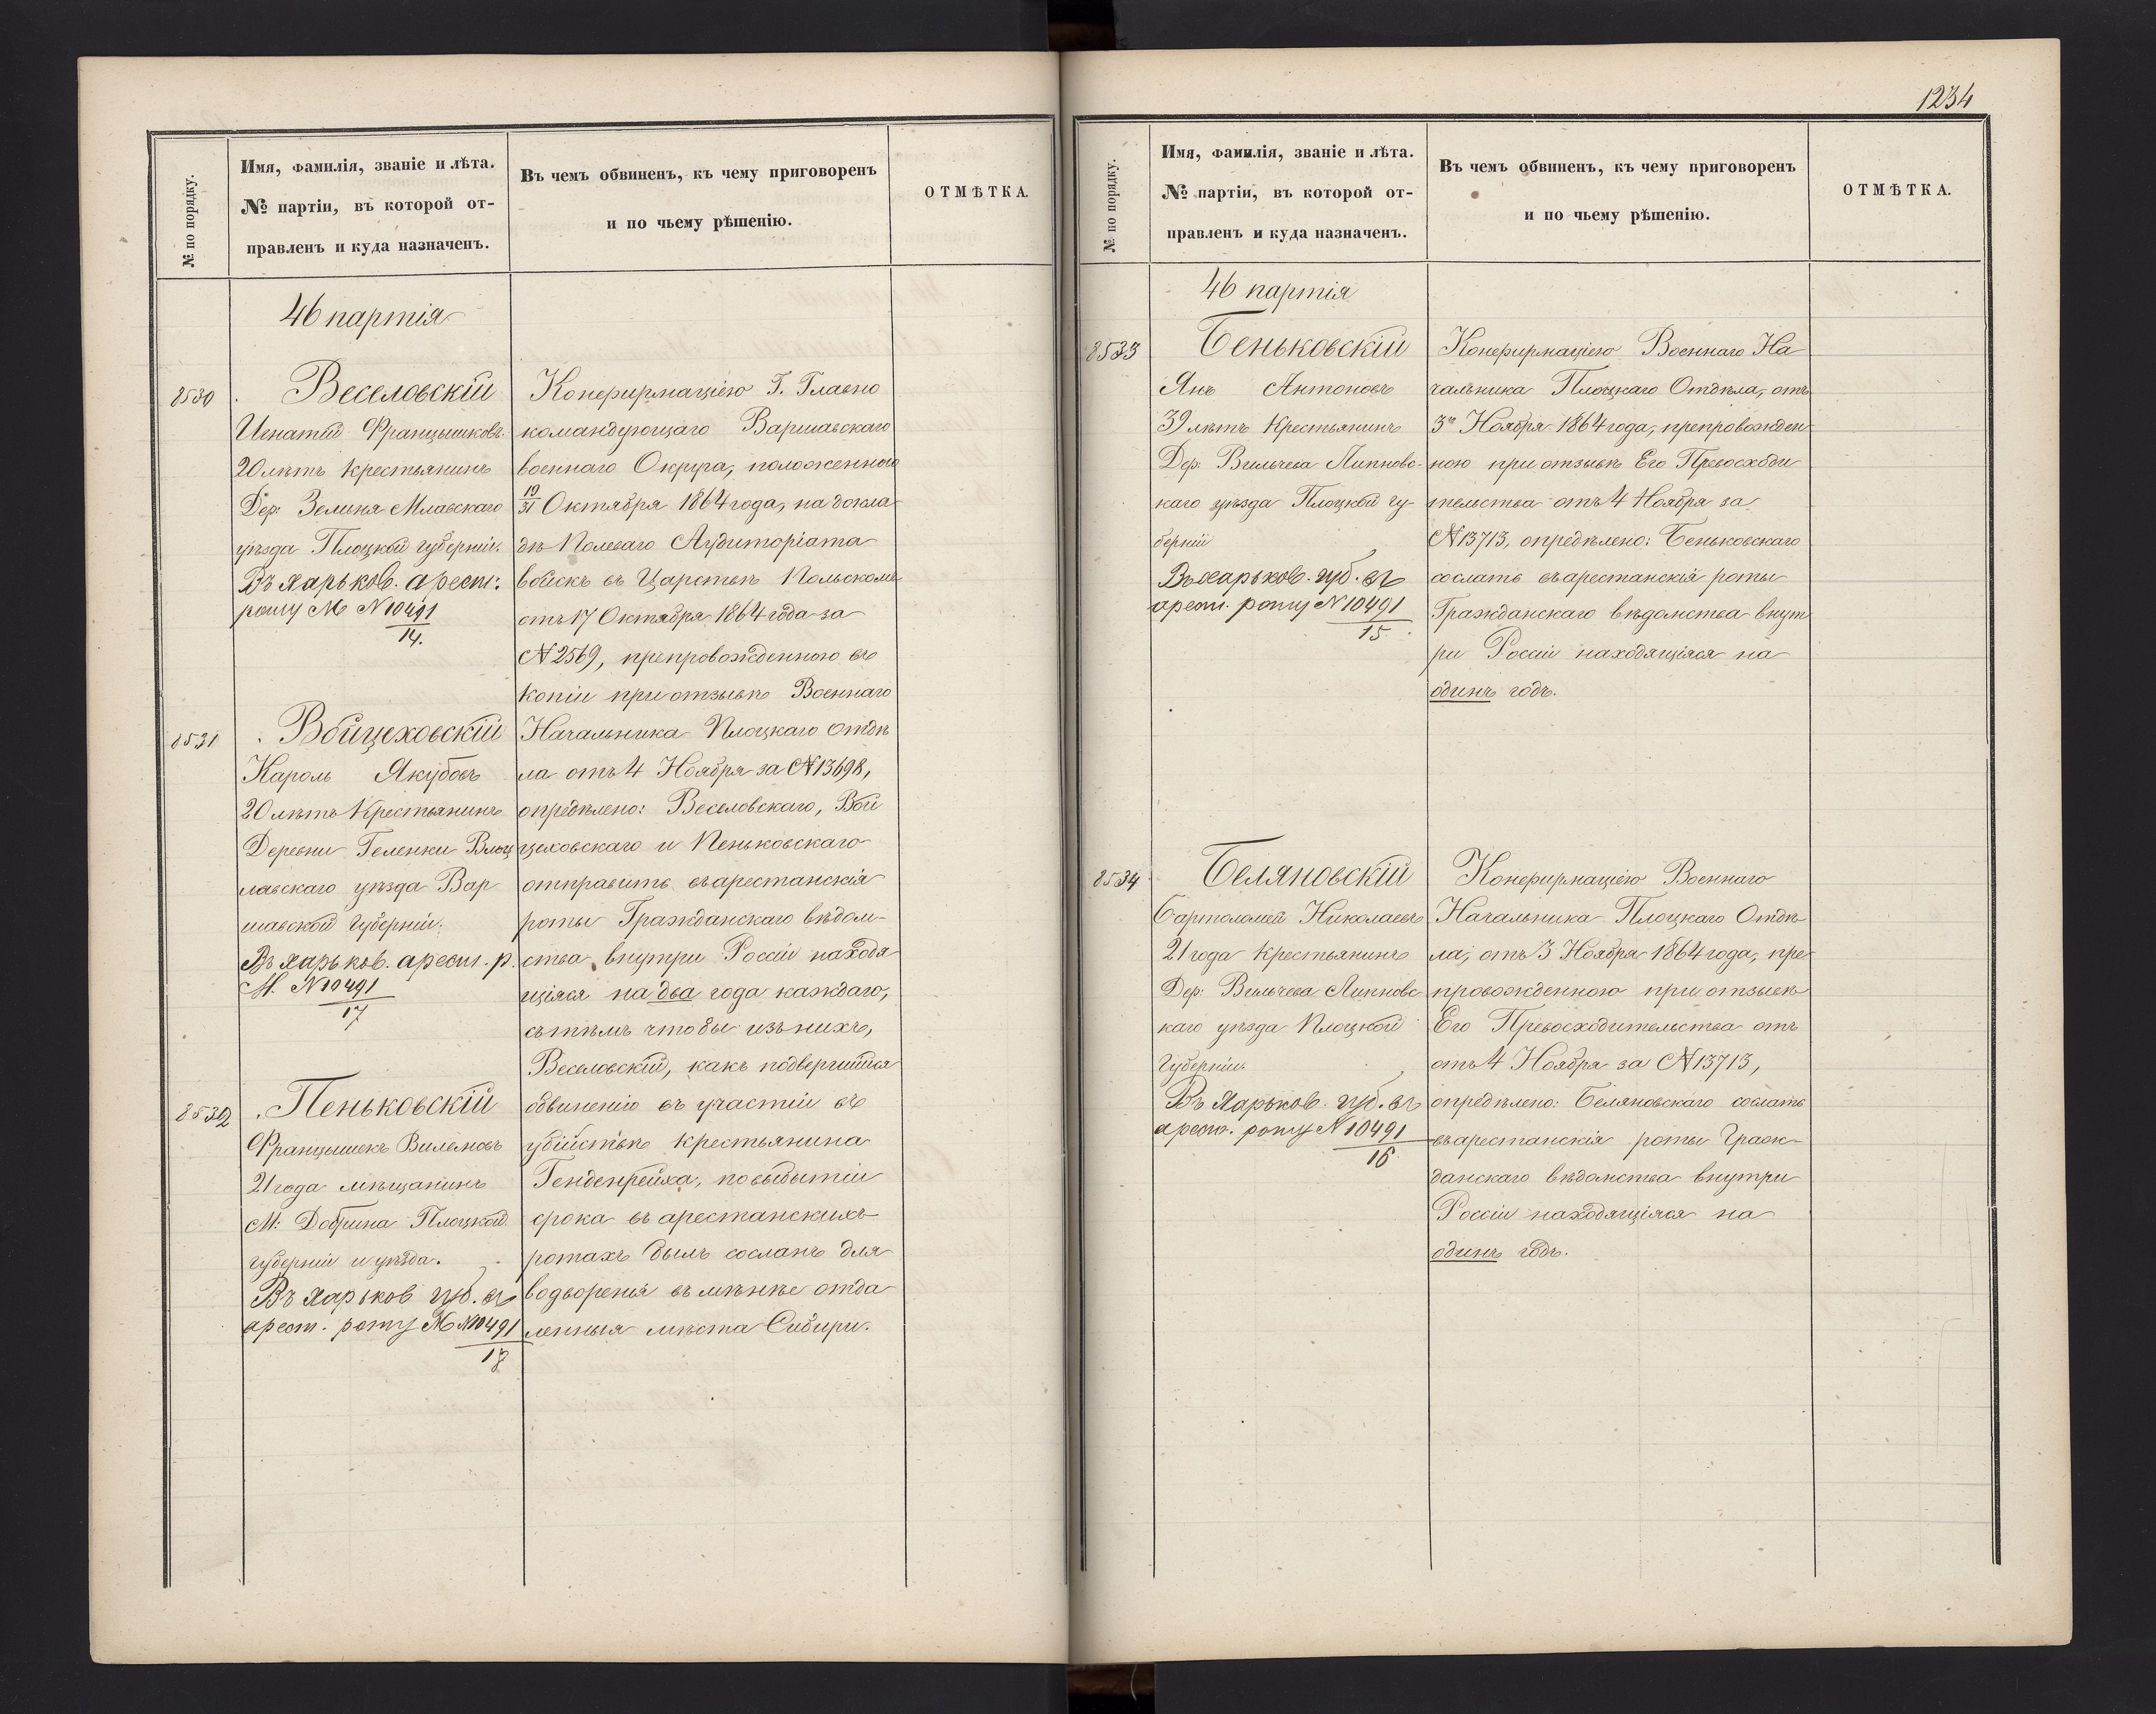 № по порядку.
Имя, фамилія, званіе и лѣта.
№ партіи, въ которой от-
правленъ и куда назначенъ.
Въ чемъ обвиненъ, къ чему приговоренъ
и по чьему рѣшенію.
ОТМѢТКА.
46 партія
8530
Веселовскій
Игнатій Францышковъ
20 лѣтъ крестьянинъ
Дер: Зельня Млавскаго
уѣзда Плоцкой губерніи.
Въ Харьков. арест:
роту М №10491
14.
8531
Войцеховскій
Кароль Якубовъ
20 лѣтъ Крестьянинъ
Деревни Геленки Влоц
лавскаго уѣзда Вар
шавской Губерніи.
Въ Харьков. арест. р.
М. №10491
17
8532
Пеньковскій
Францышекъ Вилемовъ
21 года мѣщанинъ
М: Добрина Плоцкой
губерніи и уѣзда.
Въ Харьков губ. въ
арест. роту М №10491
18
Конфирмаціею Г. Главно
командующаго Варшавскаго
военнаго Округа, положенною
19/31 Октября 1864 года, на докла
дѣ Полеваго Аудиторіата
войскъ въ Царствѣ Польскомъ
отъ 17 Октября 1864 года за
№ 2569, препровожденною въ
копіи при отзывѣ Военнаго
Начальника Плоцкаго Отдѣ
ла отъ 4 Ноября за №13698,
опредѣлено: Веселовскаго, Вой
цеховскаго и Пеньковскаго
отправить въ арестанскія
роты Гражданскаго вѣдом-
ства, внутри Россіи находя
щіяся на два года каждаго,
съ тѣмъ чтобы изъ нихъ,
Веселовскій, какъ подвергшійся
обвиненію въ участіи въ
убійствѣ крестьянина
Генденрейха, по выбытіи
срока въ арестанскихъ
ротахъ былъ сосланъ для
водворенія въ менѣе отда
ленныя мѣста Сибири.
1234
№ по порядку.
Имя, фамилія, званіе и лѣта.
№ партіи, въ которой от-
правленъ и куда назначенъ.
Въ чемъ обвиненъ, къ чему приговоренъ
и по чьему рѣшенію.
ОТМѢТКА.
46 партія
8533
Беньковскій
Янъ Антоновъ
39 лѣтъ Крестьянинъ
Дер: Вильчева Липновс-
каго уѣзда Плоцкой гу-
берніи
Въ Харьков. губ. въ
арест. роту №10491
15
Конфирмаціею Военнаго На
чальника Плоцкаго Отдѣла, отъ
3го Ноября 1864 года, препровожден
ною при отзывѣ Его Превосходи
тельства отъ 4 Ноября за
№13713, опредѣлено: Беньковскаго
сослать въ арестанскія роты
Гражданскаго вѣдомства внут
ри Россіи находящіяся на
одинъ годъ.
8534
Беляновскій
Бартоломей Николаевъ
21 года Крестьянинъ
Дер: Вильчева Липновс
каго уѣзда Плоцкой
Губерніи
Въ Харьков. губ. въ
арест. роту №10491
16
Конфирмаціею Военнаго
Начальника Плоцкаго Отдѣ
ла, отъ 3 Ноября 1864 года, пре
провожденною при отзывѣ
Его Превосходительства отъ
отъ 4 Ноября за №13713,
опредѣлено: Беляновскаго сослать
въ арестанскія роты Граж-
данскаго вѣдомства внутри
Россіи находящіяся на
одинъ годъ.